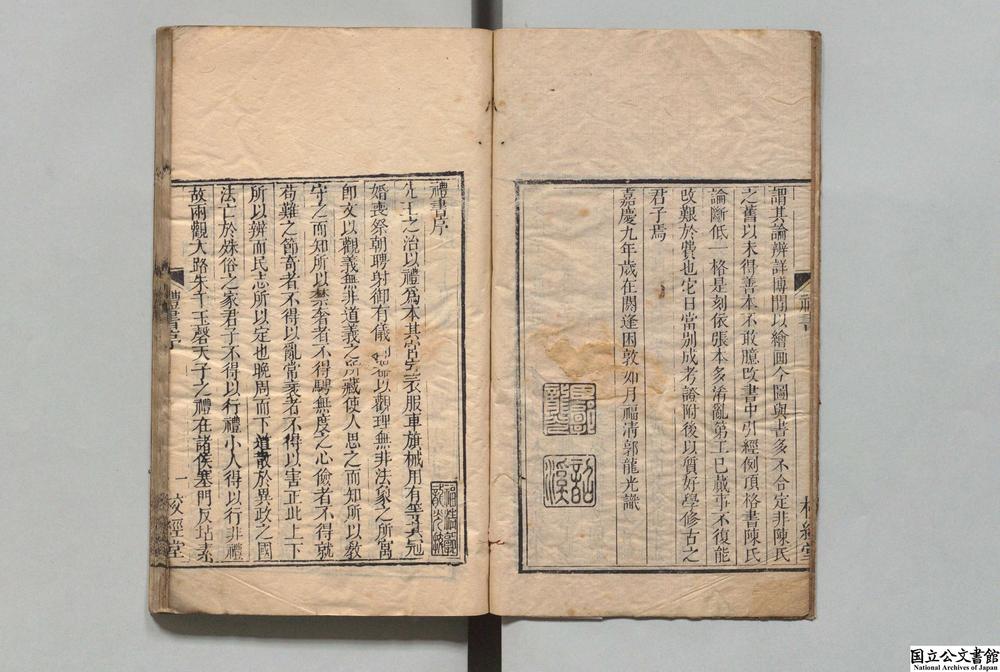 謂其論辨詳博閒以繪画今圖與書多不合定非陳氏
之舊以未得善本不敢臆改書中引經例頂格書陳氏
論斷低一格是刻依張本多淆亂第工已蕆事不復能
改艱於費也它日當別成考證附後以質好學修古之
君子焉
嘉慶九年歲在閼逢困敦如月福清郭龍光識
禮書序
先王之治以禮爲本其宮室衣服車旗械用有等其冠
婚喪祭朝聘射御有儀以觀理無非法象之所寓
卽文以觀義無非道義之所藏使人思之而知所以敎
守之而知所以禁奢者不得騁無度之心儉者不得就
苟難之節奇者不得以亂常衺者不得以害正此上下
所以辨而民志所以定也晚周而下道散於異政之國
法亡於殊俗之家君子不得以行禮小人得以行非禮
故兩觀大路朱干玉磬天子之禮在諸侯塞門反坫素
禮書序
一
校經堂
国立公文書館
National Archives of Japan